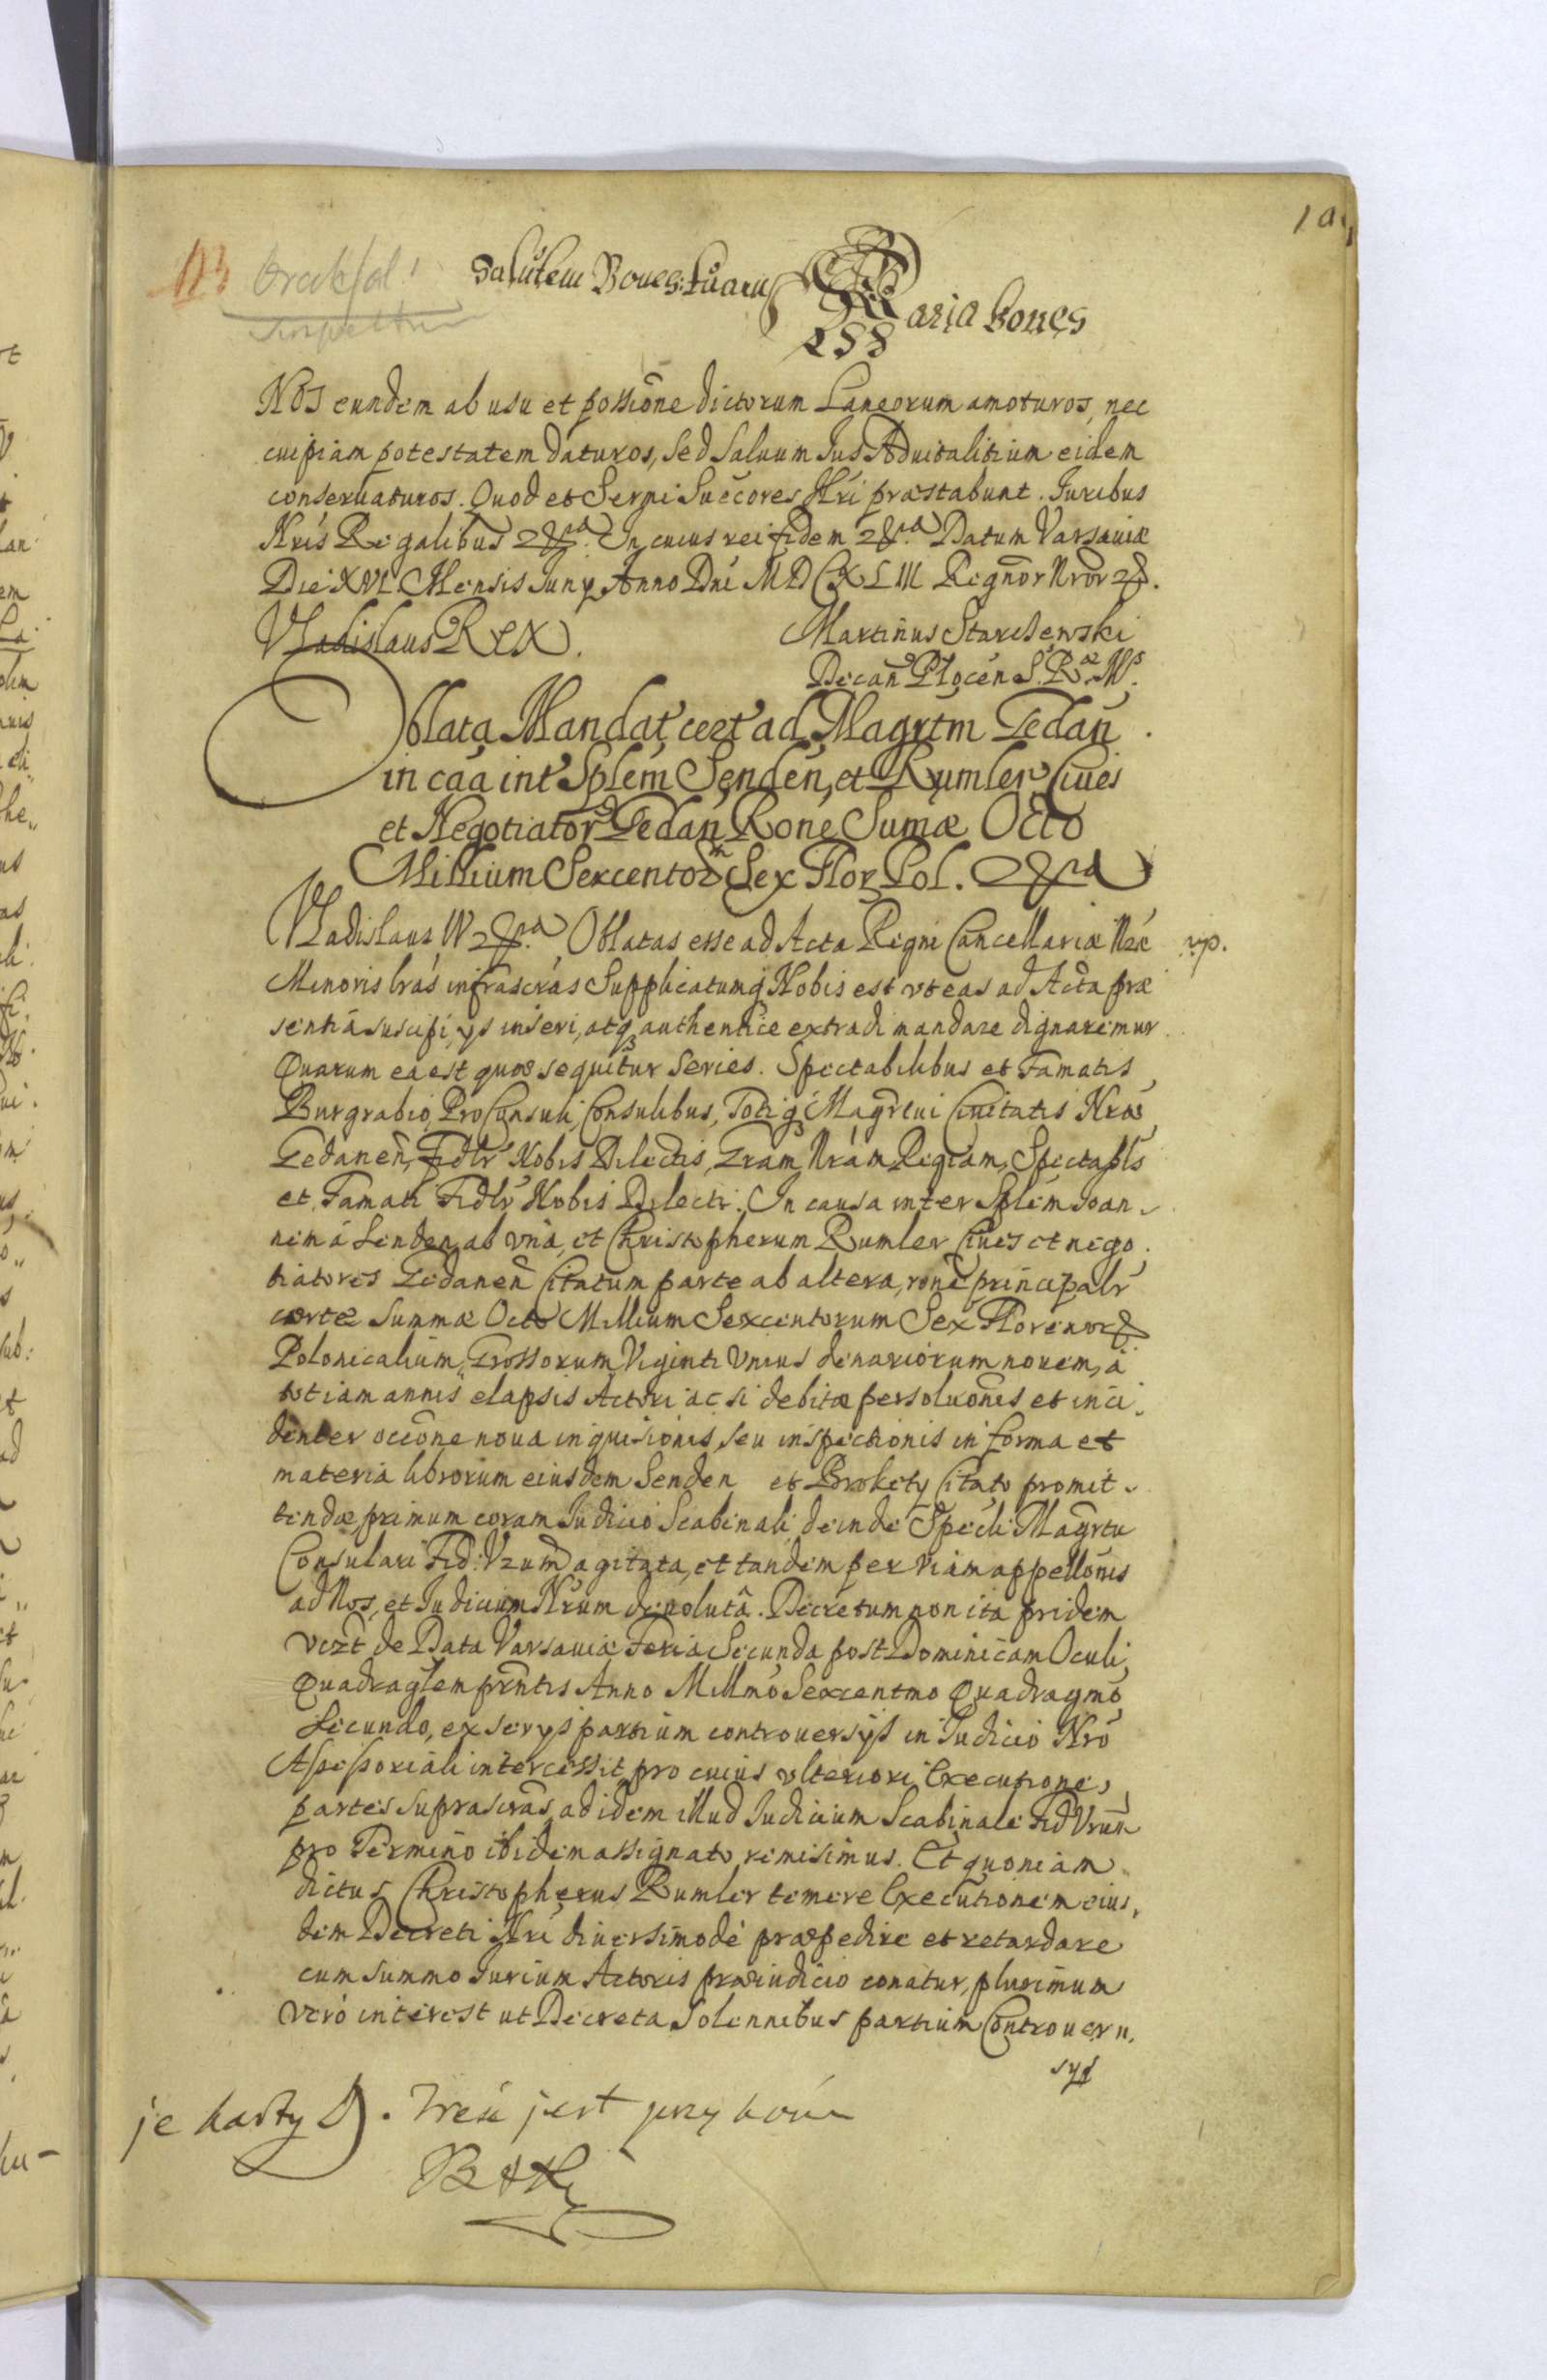 Salutem Boues: tuam
Maria boues
NOS eundem ab usu et possione dictorum Laneorum amoturos, nec
cuipiam potestatem daturos, sed saluum Jus Aduitalitium eidem
conseruaturos. Quod et Sermi Succores Nri præstabunt. Juribus
Nris Regalibus &ra In cuius rei fidem &ra Datum Varsauiæ
Die XVI Mensis Juny Anno Dni MDCXLIII Regnor Nror &.
Vladislaus Rex.
Martinus
Decan Plocen S.Ræ.Ms.
Oblata Mandat cert ad Magrtm Gedan
in caa int Splem Senden, et Rumler Ciues
et Negotiator Gedan Rone Sumæ Octo
Millium Sexcentor Sex Flor Pol. &ra
Vladislaus IV &ra Oblatas esse ad Acta Regni Cancellariæ Nræ
Minoris lras infrascras Supplicatumq Nobis est vt eas ad Acta præ
sentia suscipi, ys inseri, atq authentice extradi mandare dignaremur
Quarum ea est quæ sequitur series. Spectabilibus et Famatis
Burgrabio, ProConsuli, Consulibus, Totiq Magrtui Ciuitatis Nræ
Gedanen, Fidlr Nobis Dilectis, Gram Nram Regiam, Spectabls
et Famati Fidlr Nobis Dilecti. In causa inter Splem Joan-
nem á Senden ab vna, et Christopherum Rumler Ciues et nego.
tiatores Gedanen Citatum parte ab altera, rone principalr
certæ summæ Octo Millium Sexcentorum Sex Florenor
Polonicalium, Grossorum Viginti Vnius denariorum nouem, á
tot iam annis elapsis Actori ac si debitæ persoluonis et inci-
denter occone noua inquisionis, seu inspectionis in forma et
materia librorum eiusdem Senden et Citato promit-
tendæ, primum coram Judicio Scabinali deinde Specli Magrtu
Consulari Fid: Vrum agitata, et tandem per viam appellonis
ad Nos, et Judicium Nrum deuoluta. Decretum non ita pridem
vizt de Data Varsauiæ Feria Secunda post Dominicam Oculi
Quadraglem prntis Anno Millmo Sexcentmo Quadragmo
Secundo, ex serys partium controuersys in Judicio Nro
Assessoriali intercessit, pro cuius vlteriori Executione,
partes suprascras ad idem illud Judicium Scabinale Fid Vrum
pro Termino ibidem assignato remisimus. Et quoniam
dictus Christopherus Rumler temere Executionem eius,
dem Decreti Nri diuersimodé præpedire et retardare
cum summo Jurium Actoris præiudicio conatur, plurimum
veró interest ut Decreta Solennibus partium Controuer
sys
vp.
jest przy